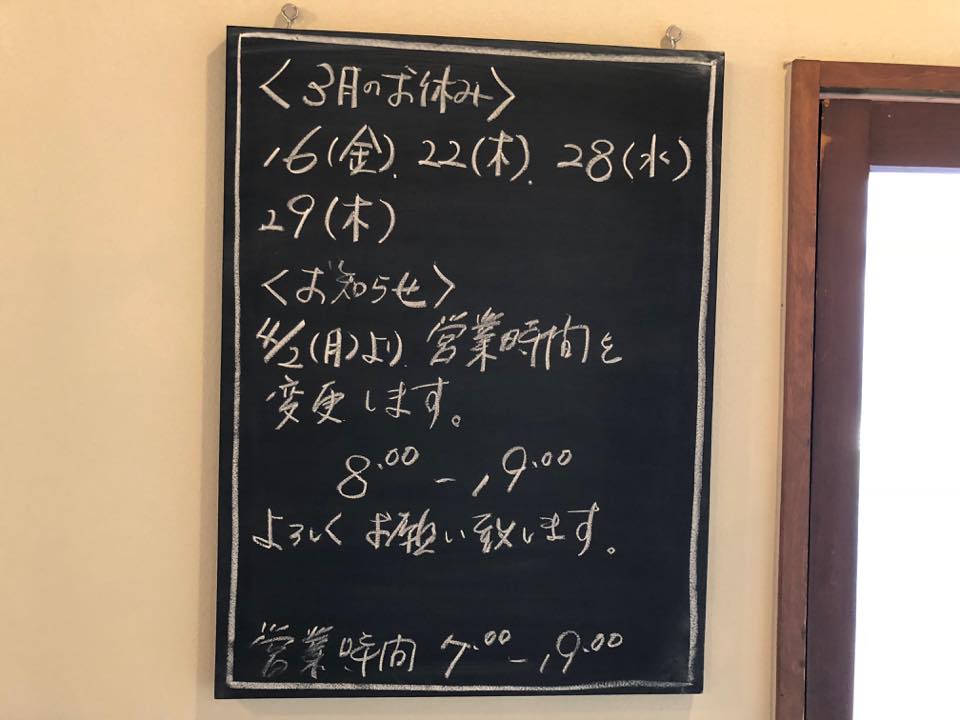 〈3月のお休み〉
16(金)、22(木)、28(水)
29(木)
〈お知らせ〉
4/2(月)より 営業時間を
変更します。
8:00 - 19:00
よろしくお願い致します。
営業時間 7:00 - 19:00